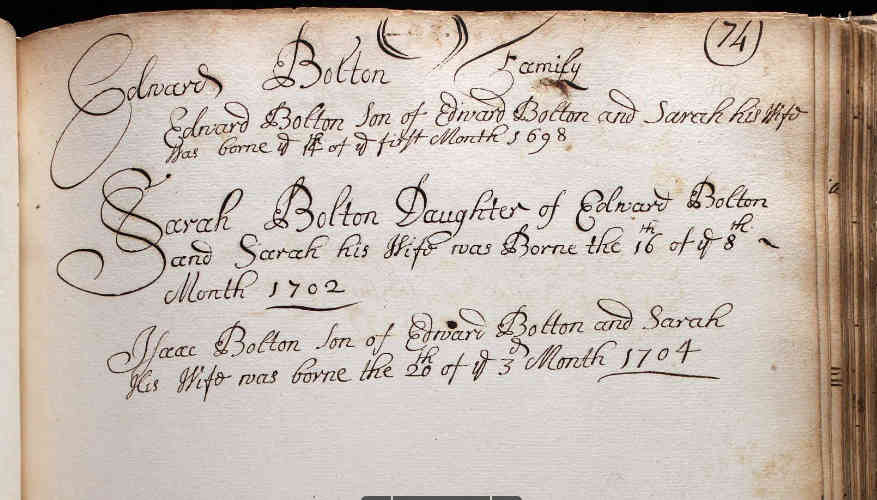 (74)
Edward Bolton Family
Edward Bolton Son of Edward Bolton and Sarah his Wife
Was borne ye 14 of ye first Month 1698
Sarah Bolton Daughter of Edward Bolton
and Sarah his Wife was Borne the 16th of ye 8th
Month 1702
Isaac Bolton Son of Edward Bolton and Sarah
His Wife was borne the 20th of ye 3d Month 1704